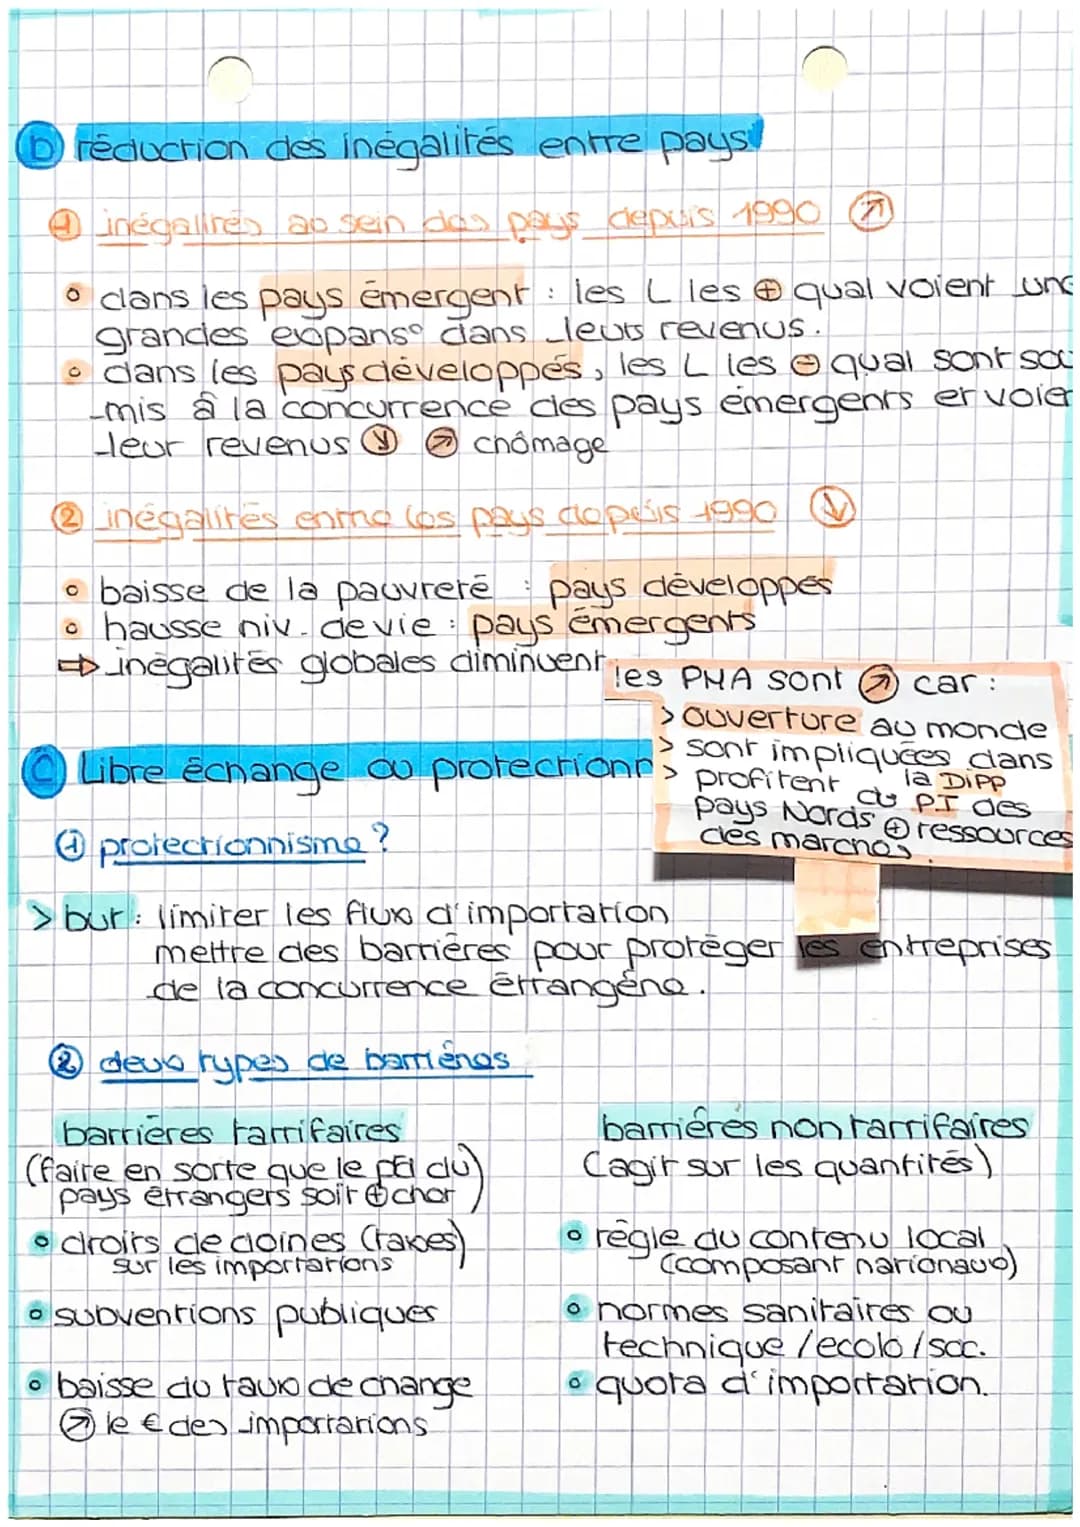 b réduction des inégalités entre pays
1 inégalités au sein des pays depuis 1990 ↗
dans les pays émergent : les L les ⊕ qual voient une
grandes expans° dans leurs revenus.
dans les pays développés, les L les ⊖ qual sont sou
-mis à la concurrence des pays émergents et voien
leur revenus ↘ ↗ chômage
2 inégalités entre les pays depuis 1990 ↓
baisse de la pauvreté : pays développés
hausse niv. de vie : pays émergents
⇒ inégalités globales diminuent.
les PMA sont ↗ car :
> ouverture au monde
> sont impliquées dans
la DIPP
> profitent du PI des
pays Nords ⊕ ressources
des marchés.
C Libre échange ou protectionn
1 protectionnisme ?
> but : limiter les flux d'importation
mettre des barrières pour protéger les entreprises
de la concurrence étrangère.
2 deux types de barrières
barrières tarrifaires
(faire en sorte que le pd du
pays étrangers soit ⊕ cher)
droits de doines (taxes)
sur les importations
subventions publiques
baisse du taux de change
↗ le € des importations
barriérés non tarrifaires
(agit sur les quantités)
règle du contenu local
(composant nationaux)
normes sanitaires ou
technique / ecolo / soc.
quota d'importation.